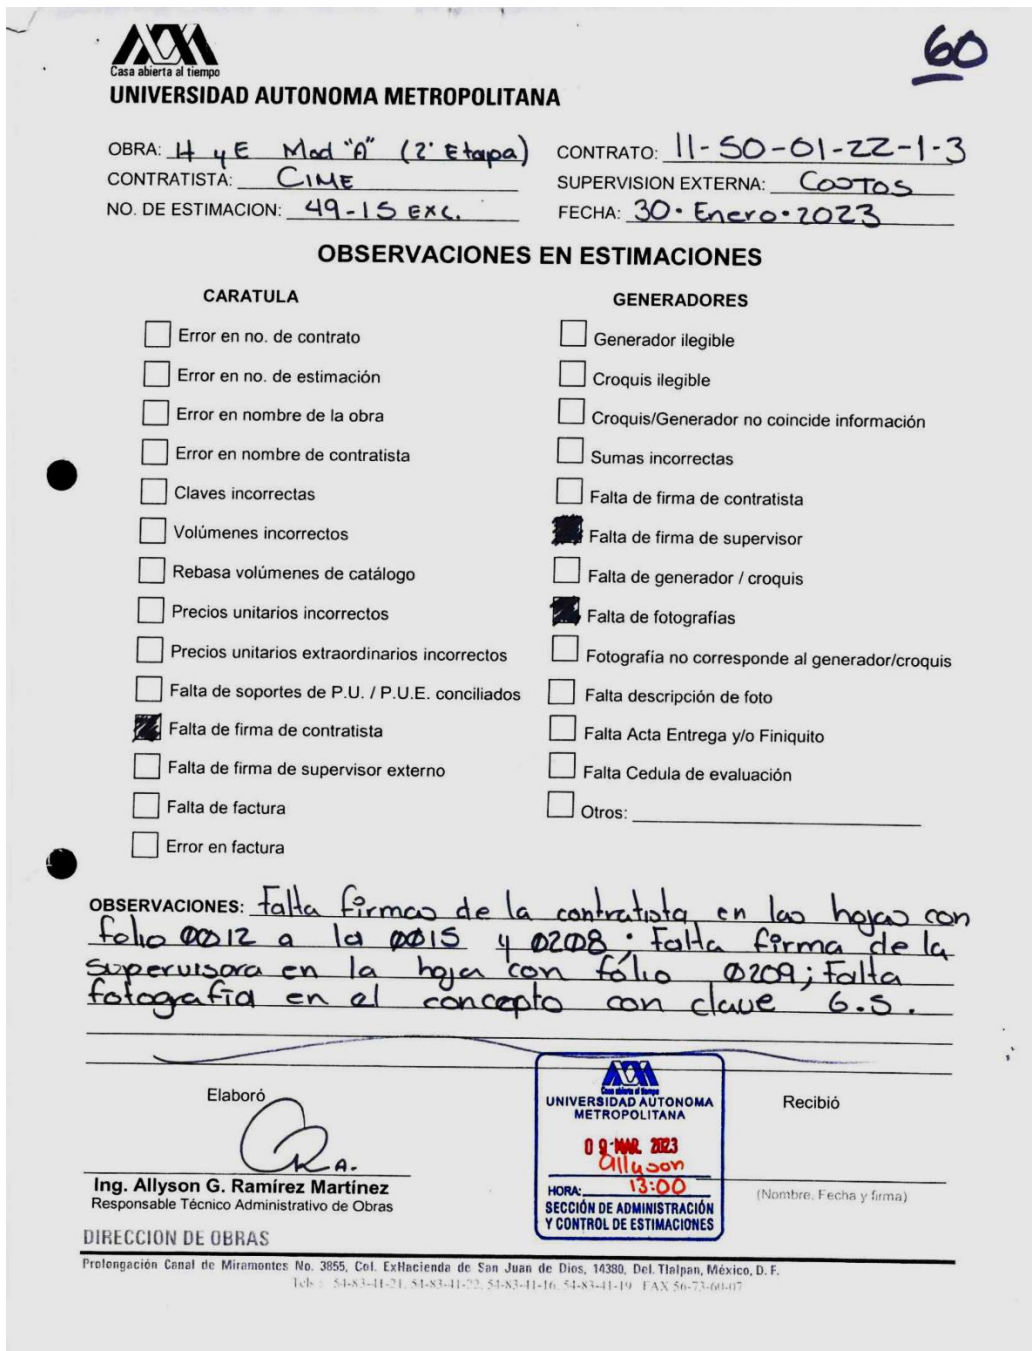 60
Casa abierta al tiempo
UNIVERSIDAD AUTONOMA METROPOLITANA
OBRA: H y E Mod "A" (2ª Etapa)
CONTRATO: 11-SO-01-22-1-3
CONTRATISTA: CIME
SUPERVISION EXTERNA: COSTOS
NO. DE ESTIMACION: 49-15 EXC.
FECHA: 30·Enero·2023
OBSERVACIONES EN ESTIMACIONES
CARATULA
Error en no. de contrato
Error en no. de estimación
Error en nombre de la obra
Error en nombre de contratista
Claves incorrectas
Volúmenes incorrectos
Rebasa volúmenes de catálogo
Precios unitarios incorrectos
Precios unitarios extraordinarios incorrectos
Falta de soportes de P.U. / P.U.E. conciliados
Falta de firma de contratista
Falta de firma de supervisor externo
Falta de factura
Error en factura
GENERADORES
Generador ilegible
Croquis ilegible
Croquis/Generador no coincide información
Sumas incorrectas
Falta de firma de contratista
Falta de firma de supervisor
Falta de generador / croquis
Falta de fotografías
Fotografía no corresponde al generador/croquis
Falta descripción de foto
Falta Acta Entrega y/o Finiquito
Falta Cedula de evaluación
Otros:
OBSERVACIONES: Falta firmas de la contratista en las hojas con
folio 0012 a la 0015 y 0208; Falta firma de la
supervisora en la hoja con fólio 0209; Falta
fotografía en el concepto con clave 6.5.
Elaboró
Ing. Allyson G. Ramírez Martínez
Responsable Técnico Administrativo de Obras
Casa abierta al tiempo
UNIVERSIDAD AUTONOMA
METROPOLITANA
09 MAR. 2023
allyson
HORA: 13:00
SECCIÓN DE ADMINISTRACIÓN
Y CONTROL DE ESTIMACIONES
Recibió
(Nombre, Fecha y firma)
DIRECCION DE OBRAS
Prolongación Canal de Miramontes No. 3855, Col. ExHacienda de San Juan de Dios, 14380, Del. Tlalpan, México, D. F.
Tels.: 54-83-41-21, 54-83-41-22, 54-83-41-16, 54-83-41-19 FAX 56-73-60-07